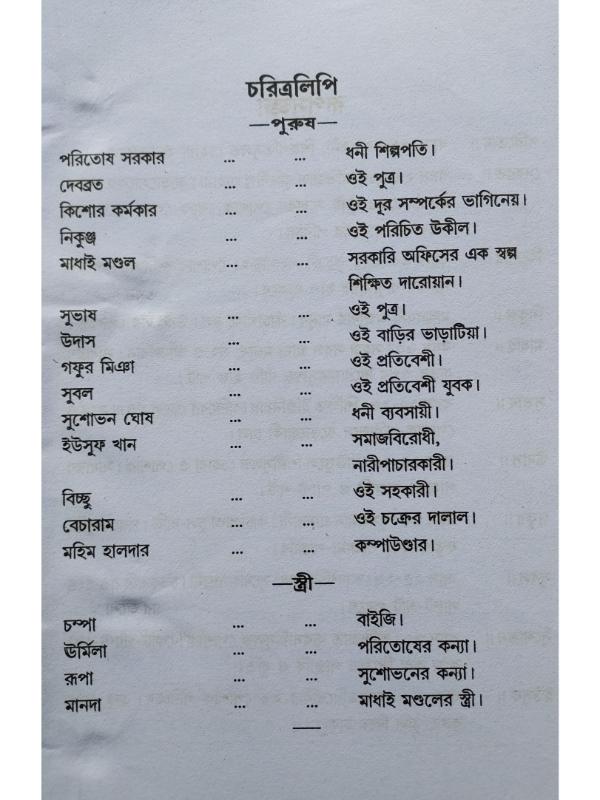 চরিত্রলিপি
—পুরুষ—
পরিতোষ সরকার ... ... ধনী শিল্পপতি।
দেবব্রত ... ... ওই পুত্র।
কিশোর কর্মকার ... ... ওই দূর সম্পর্কের ভাগিনেয়।
নিকুঞ্জ ... ... ওই পরিচিত উকীল।
মাধাই মণ্ডল ... ... সরকারি অফিসের এক স্বল্প
শিক্ষিত দারোয়ান।
সুভাষ ... ... ওই পুত্র।
উদাস ... ... ওই বাড়ির ভাড়াটিয়া।
গফুর মিঞা ... ... ওই প্রতিবেশী।
সুবল ... ... ওই প্রতিবেশী যুবক।
সুশোভন ঘোষ ... ... ধনী ব্যবসায়ী।
ইউসুফ খান ... ... সমাজবিরোধী,
নারীপাচারকারী।
বিচ্ছু ... ... ওই সহকারী।
বেচারাম ... ... ওই চক্রের দালাল।
মহিম হালদার ... ... কম্পাউণ্ডার।
—স্ত্রী—
চম্পা ... ... বাইজি।
ঊর্মিলা ... ... পরিতোষের কন্যা।
রূপা ... ... সুশোভনের কন্যা।
মানদা ... ... মাধাই মণ্ডলের স্ত্রী।